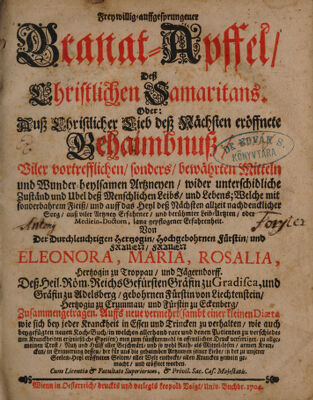 Freywillig-auffgesprungener
Granat-Apffel/
Deß
Christlichen Samaritans.
Oder:
Auß Christlicher Lieb deß Nächsten eröffnete
Gehaimbnuß
Viler vortrefflichen/ sonders/ bewährten Mitteln
und Wunder-heylsamen Artzneyen/ wider unterschidliche
Zuständ und Übel deß Menschlichen Leibs/ und Lebens; Welche mit
sonderbahrem Fleiß/ und auff das Heyl deß Nächsten allzeit nachdencklicher
Sorg/ auß viler Artzney Erfahrner/ und berühmter Leib-Artzten/ oder
Medicin-Doctorn/ lang-gepflogener Erfahrenheit.
DE KOVÁTS S.
KÖNYVTÁRA
Antony
Von
Der Durchleuchtigen Hertzogin/ Hochgebohrnen Fürstin/ und
FRAUEN/ FRAUEN
ELEONORA, MARIA, ROSALIA,
Hertzogin zu Troppau/ und Jägerndorff.
Deß Heil. Röm. Reichs Gefürsten Gräfin zu Gradisca, und
Gräfin zu Adelsberg/ gebohrnen Fürstin von Liechtenstein/
Hertzogin zu Crummau/ und Fürstin zu Eckenberg/
Zusammengetragen. Auffs neue vermehrt/ sambt einer kleinen Diæta
wie sich bey jeder Kranckheit in Essen und Trincken zu verhalten/ wie auch
beygefügten neuen Koch-Buch/ in welchen allerhand rare und denen Patienten zu verschiedenen
Kranckheiten ersprießliche Speisen/
Cum Licentia & Facultate Superiorum, & Privil. Sac. Cæs. Majestatis.
Wienn in Oesterreich/ druckts und verlegts Leopold Voigt/ Univ. Buchdr. 1704.